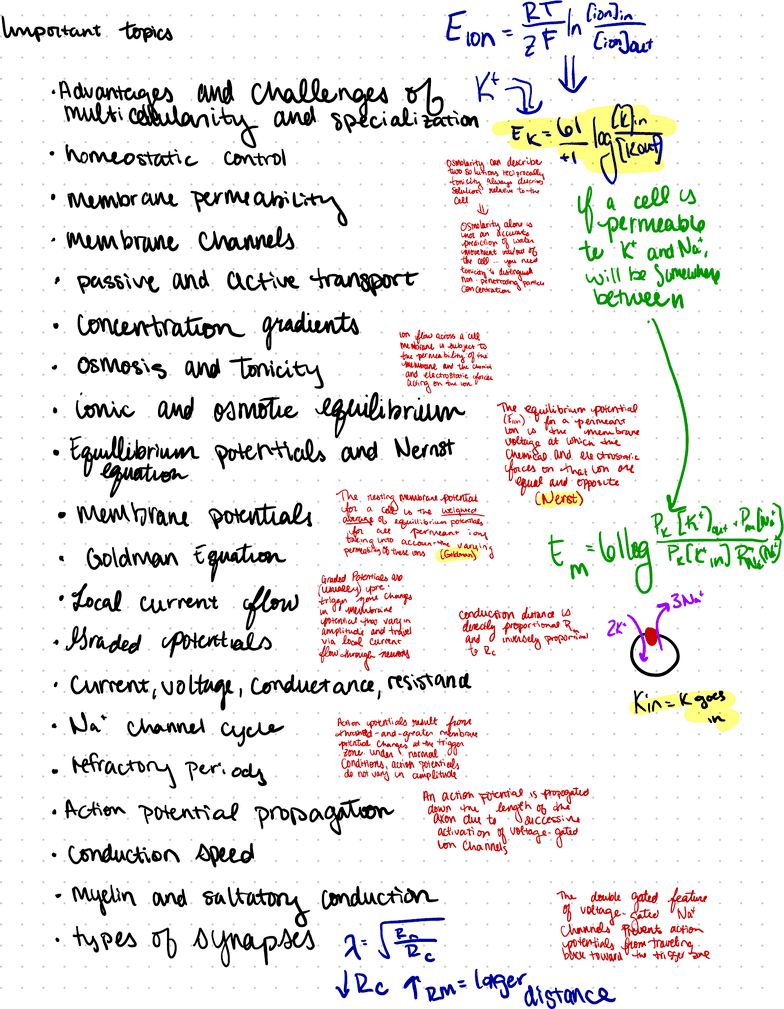 Important topics
E ion = RT/zF ln [ion]in/[ion]out
K+
EK = 61/+1 log [K]in/[Kout]
• Advantages and challenges of
multicellularity and specialization
• homeostatic control
• membrane permeability
• membrane channels
• passive and active transport
• Concentration gradients
• Osmosis and Tonicity
• ionic and osmotic equilibrium
• Equillibrium potentials and Nernst
equation
• Membrane potentials
• Goldman Equation
• Local current flow
• Graded potentials
• Current, voltage, conductance, resistance
• Na+ channel cycle
• refractory periods
• Action potential propagation
• Conduction speed
• Myelin and saltatory conduction
• types of synapses
Osmolarity can describe
two solutions reciprocally
tonicity always describes
solution relative to the
cell
Osmolarity alone is
not an accurate
prediction of water
movement in/out of
the cell - you need
tonicity to distinguish
non-penetrating particle
concentration
if a cell is
permeable
to K+ and Na+,
will be somewhere
between
ion flow across a cell
membrane is subject to
the permeability of the
membrane and the chemical
and electrostatic forces
acting on the ion
The equilibrium potential
(Eion) for a permeant
ion is the membrane
voltage at which the
chemical and electrostatic
forces on that ion are
equal and opposite
(Nerst)
The resting membrane potential
for a cell is the weighted
average of equilibrium potentials
for all permeant ions
taking into account the varying
permeability of these ions (Goldman)
Em = 61 log PK[K+]out + PNa[Na+]/PK[K+in] PNa[Na+]
Graded Potentials are
(usually)
trigger zone changes
in membrane
potential that vary in
amplitude and travel
via local current
flow through neurons
Conduction distance is
directly proportional Rm
and inversely proportional
to Rc
2K+
3Na+
Kin = K goes
in
Action potentials result from
threshold-and-greater membrane
potential changes at the trigger
zone under normal
conditions, action potentials
do not vary in amplitude
An action potential is propagated
down the length of the
axon due to successive
activation of voltage-gated
ion channels
The double gated feature
of voltage-gated Na+
channels prevents action
potentials from traveling
back toward the trigger zone
λ = √Rm/Rc
↓Rc ↑RM = larger
distance